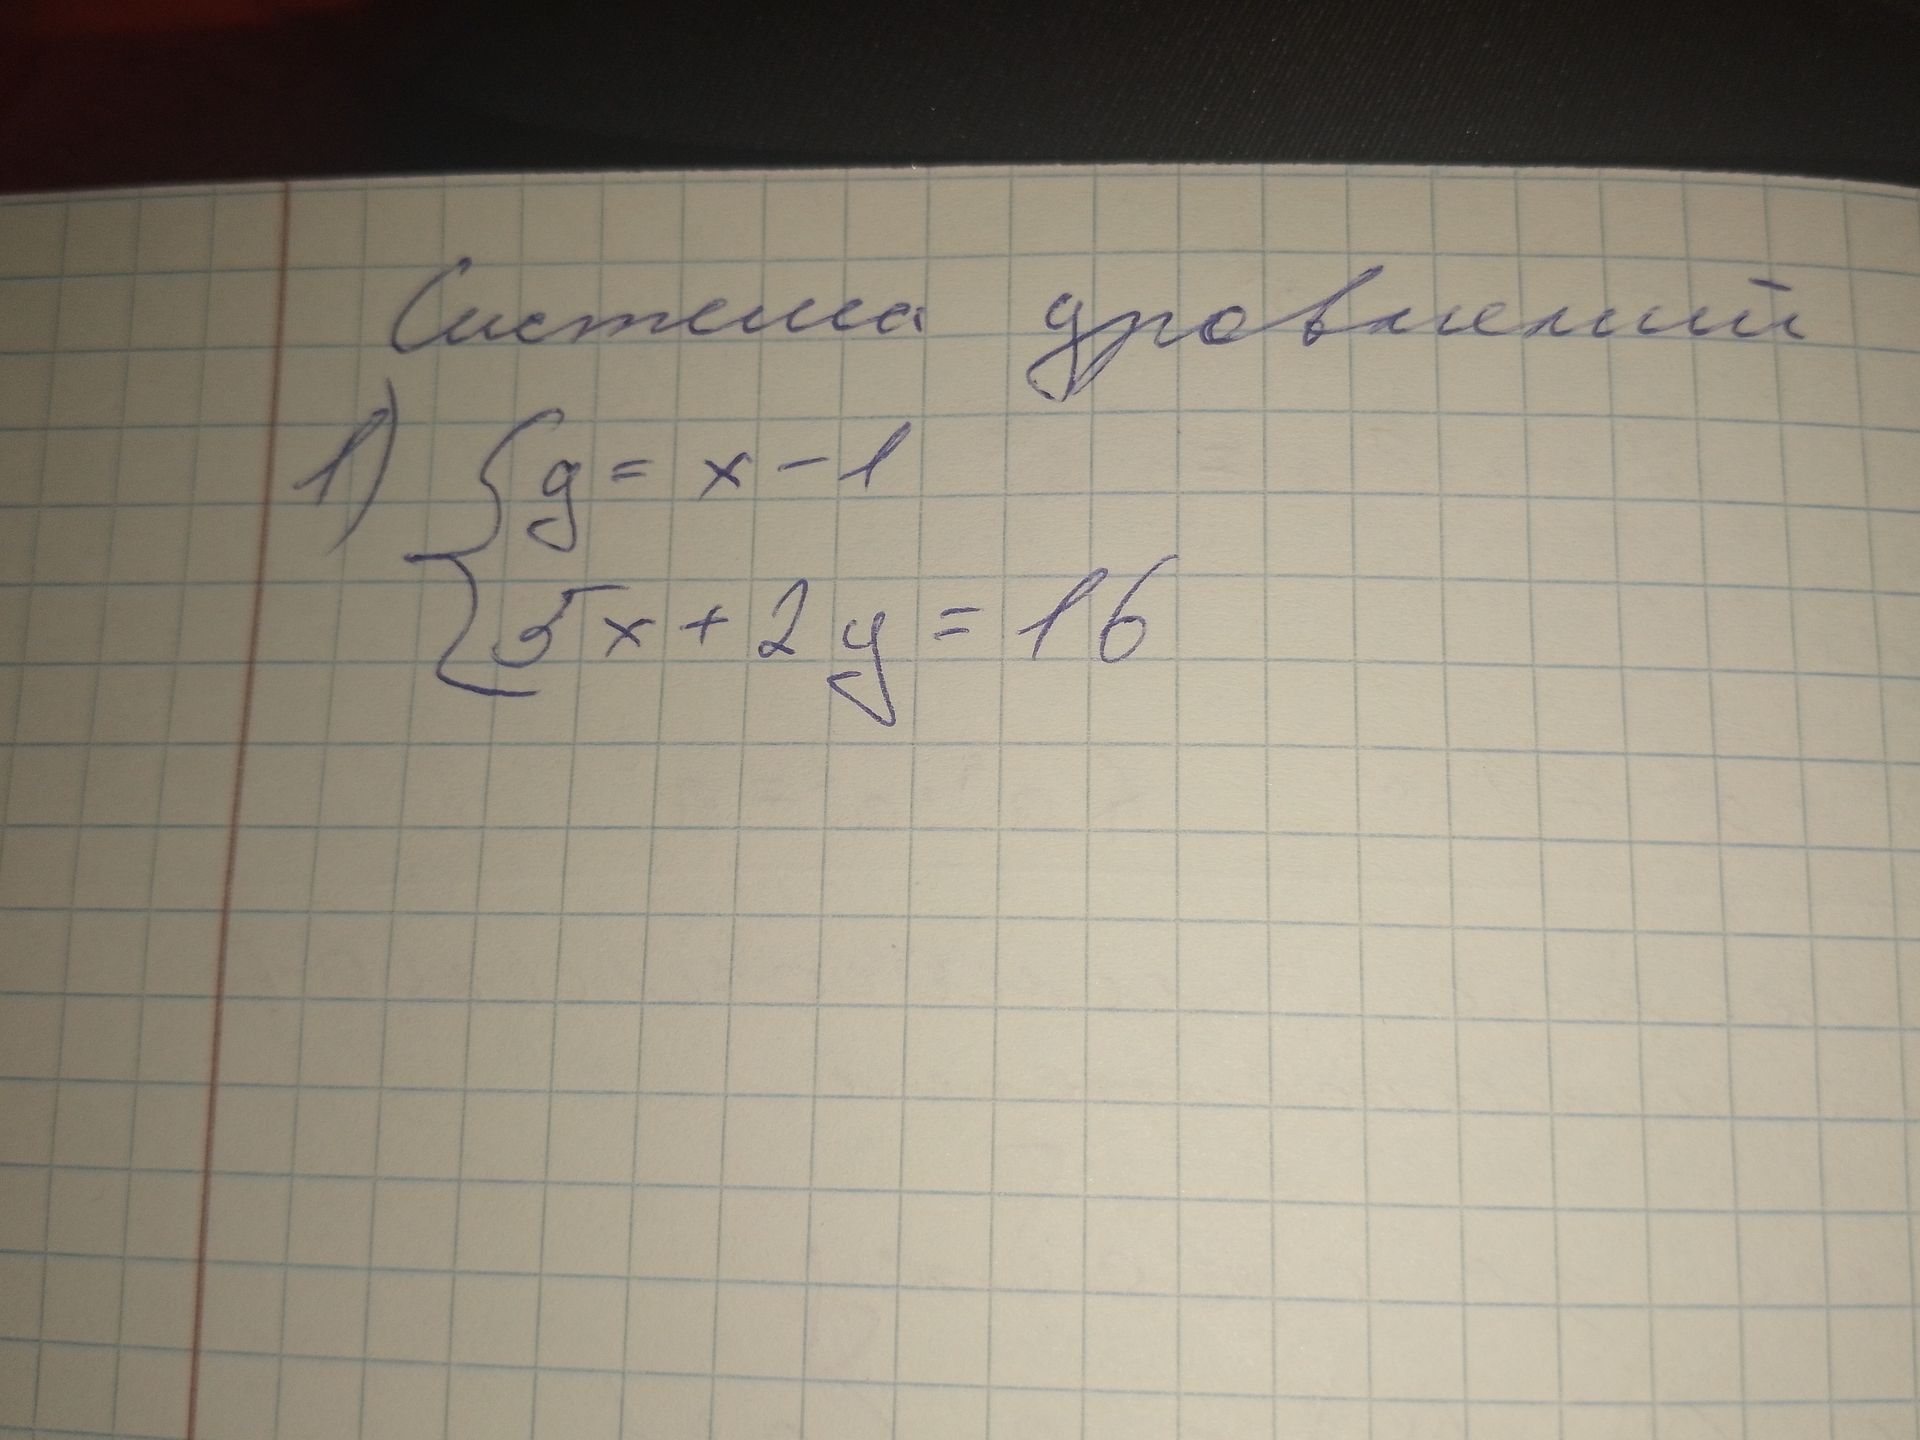 Система уровнений
1) { y = x - 1
5x + 2y = 16